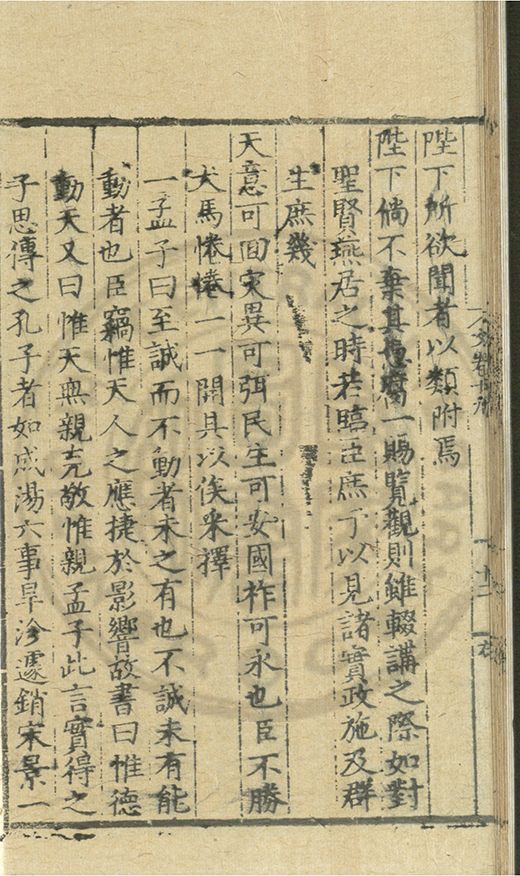 陛下所欲聞者以類附焉
陛下倘不棄其愚薦一賜覽觀則雖輟講之際如對
聖賢燕居之時若臨臣庶予以見諸實政施及群
生庶幾
天意可回灾異可弭民生可安國祚可永也臣不勝
犬馬惓惓一一開具以俟采擇
一孟子曰至誠而不動者未之有也不誠未有能
動者也臣竊惟天人之應捷於影響故書曰惟德
動天又曰惟天無親克敬惟親孟子此言實得之
子思傳之孔子者如成湯六事旱沴遽銷宋景一